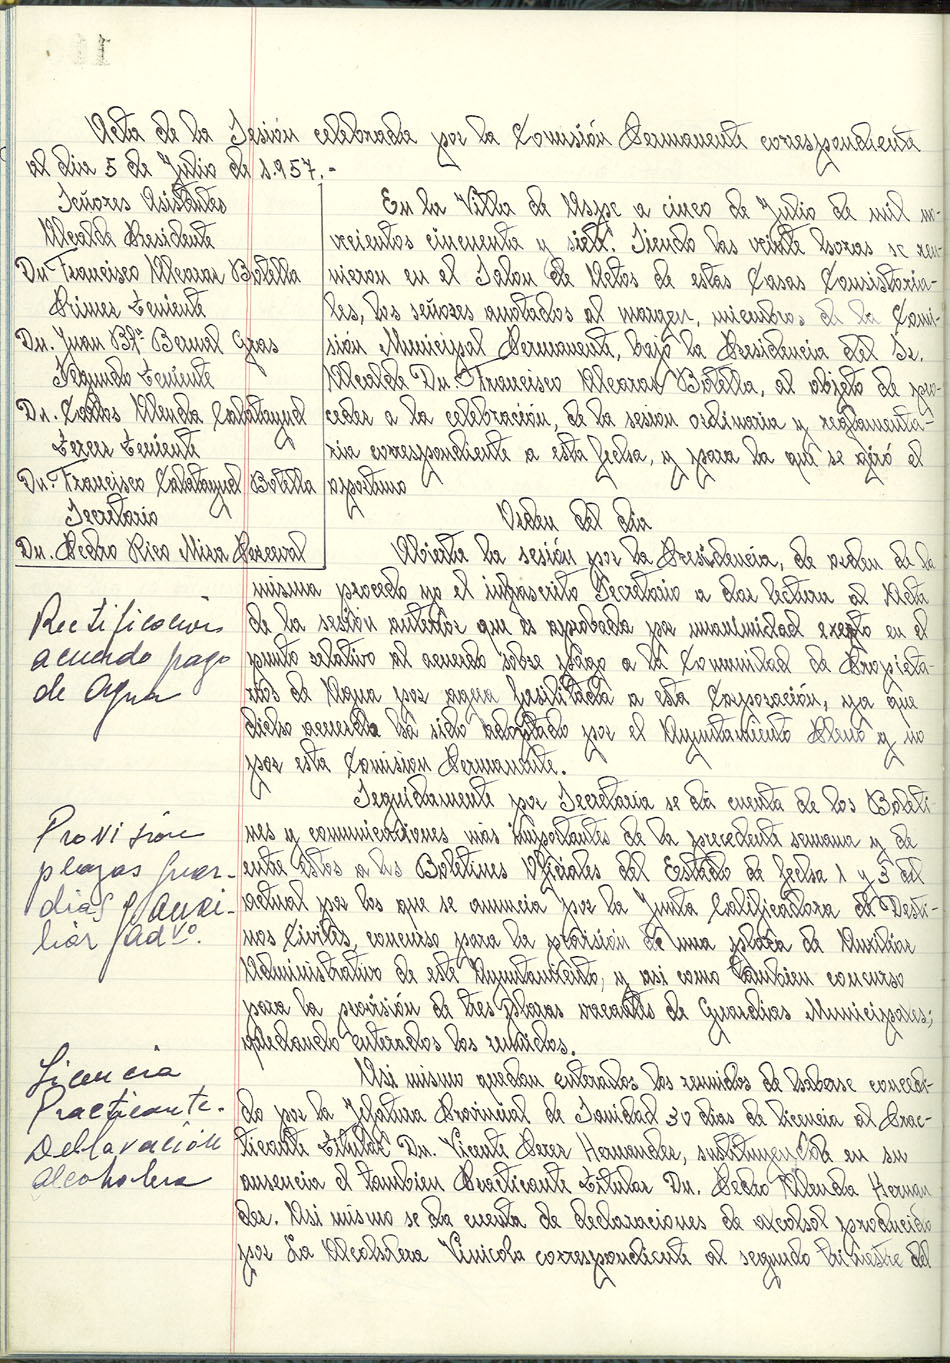 Acta de la Sesión celebrada por la Comisión Permanente correspondiente
al dia 5 de Julio de 1.957.-
Señores Asistentes
Alcalde Presidente
Dn. Francisco Alcaraz Botella
Primer Teniente
Dn. Juan Btª Bernal Gras
Segundo Teniente
Dn. Carlos Alenda Calatayud
Tercer Teniente
Dn. Francisco Calatayud Botella
Secretario
Dn. Pedro Rico Mira Perceval
En la Villa de Aspe a cinco de Julio de mil no-
vecientos cincuenta y siete. Siendo las veinte horas se reu-
nieron en el Salon de Actos de estas Casas Consistoria-
les, los señores anotados al margen, miembros de la Comi-
sión Municipal Permanente, bajo la Presidencia del Sr.
Alcalde Dn. Francisco Alcaraz Botella, al objeto de pro-
ceder a la celebración, de la sesion ordinaria y reglamenta-
ria correspondiente a esta fecha, y para la que se giró el
oportuno
Orden del dia
Abierta la sesión por la Presidencia, de orden de la
misma procedo yo el infrascrito Secretario a dar lectura al Acta
de la sesión anterior que es aprobada por unanimidad excepto en el
punto relativo al acuerdo sobre pago a la Comunidad de Propieta-
rios de Agua por agua facilitada a esta Corporación, ya que
dicho acuerdo ha sido adoptado por el Ayuntamiento Pleno y no
por esta Comision Permanente.
Rectificación
acuerdo pago
de Agua
Seguidamente por Secretaria se dá cuenta de los Boleti-
nes y comunicaciones más importantes de la precedente semana y de
entre estos a los Boletines Oficiales del Estado de fecha 1 y 3 del
actual por los que se anuncia por la Junta Calificadora de Desti-
nos Civiles, concurso para la provisión de una plaza de Auxiliar
Administrativo de este Ayuntamiento, y asi como tambien concurso
para la provisión de tres plazas vacantes de Guardias Municipales;
quedando enterados los reunidos.
Provisión
plazas Guar-
dias y auxi-
liar advº.
Asi mismo quedan enterados los reunidos de haberse concedi-
do por la Jefatura Provincial de Sanidad 30 dias de licencia al Prac-
ticante Titular Dn. Vicente Perez Hernandez, sustituyendole en su
ausencia el tambien Practicante Titular Dn. Pedro Alenda Hernan
dez. Asi mismo se da cuenta de declaraciones de alcohol producido
por La Alcoholera Vinicola correspondiente al segundo trimestre del
Licencia
Practicante.
Declaración
alcoholera